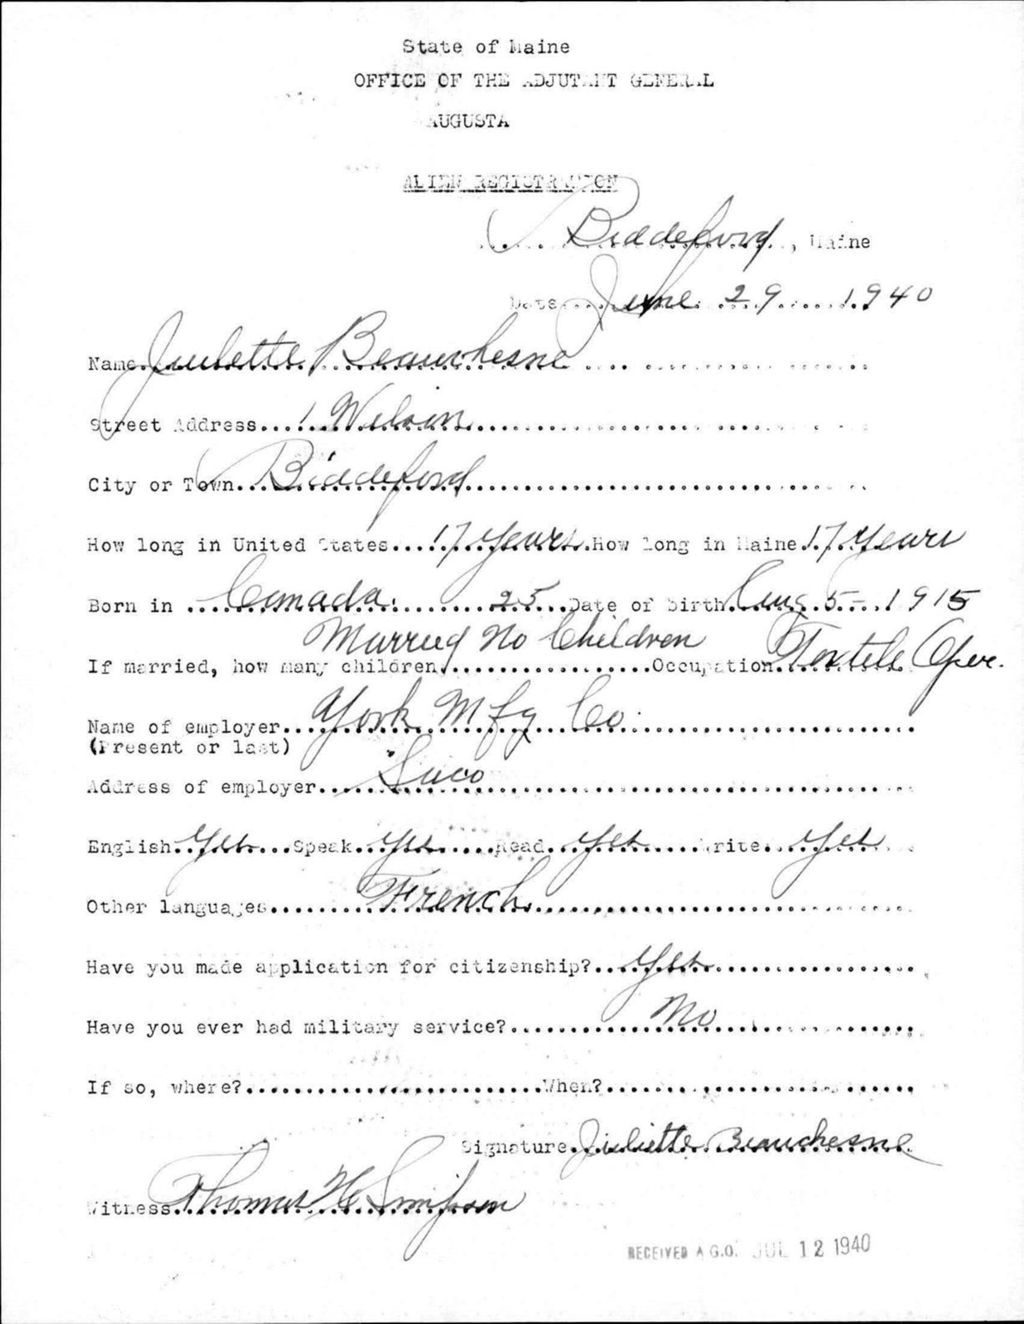 State of Maine
OFFICE OF THE ADJUTANT GENERAL
AUGUSTA
ALIEN REGISTRATION
Biddeford, Maine
Date June 29 1940
Name Juliette Beauchesne
Street Address 1 Wilson
City or Town Biddeford
How long in United States 17 years How long in Maine 17 Years
Born in Canada 25 Date of birth Aug 5 - 1915
Married No Children
If married, how many children Occupation Textile Oper.
Name of employer York Mfg Co.
(Present or last)
Address of employer Saco
English Yes Speak Yes Read Yes Write Yes
Other languages French
Have you made application for citizenship? Yes
Have you ever had military service? No
If so, where? When?
Signature Juliette Beauchesne
Witness Thomas H Simpson
RECEIVED A.G.O. JUL 12 1940